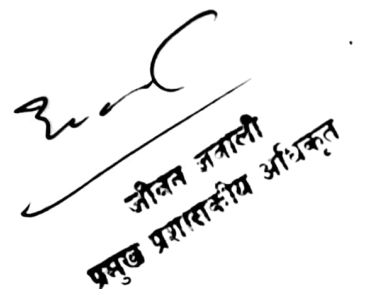 जीवन ज्ञवाली
प्रमुख प्रशासकीय अधिकृत